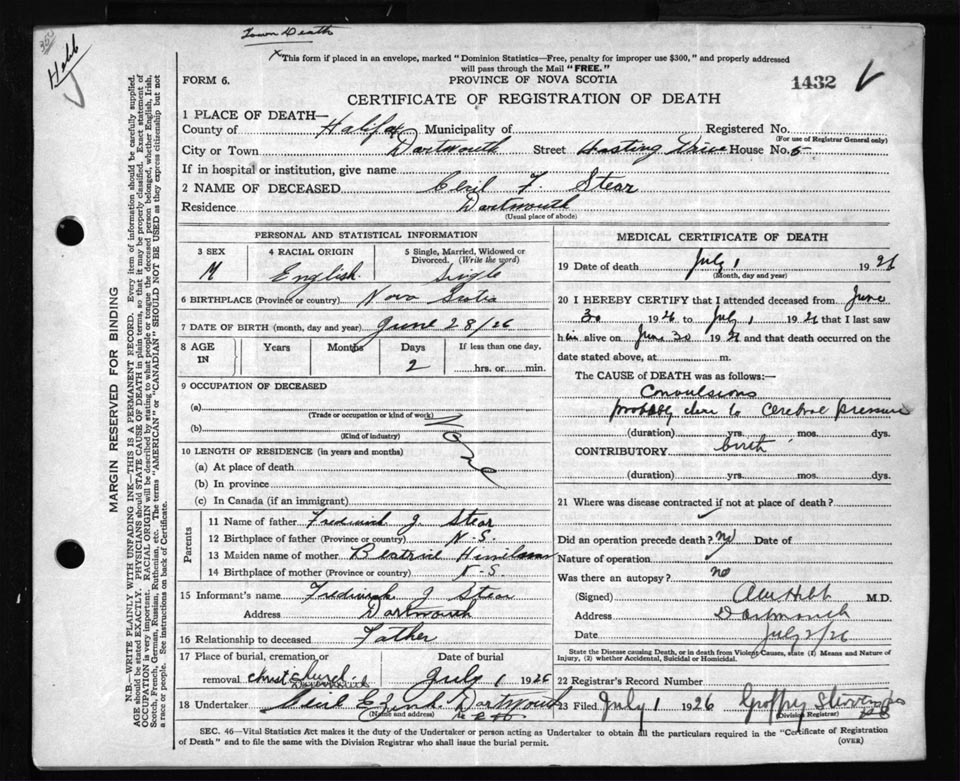 350
Hebb
Town Death
x This form if placed in an envelope, marked "Dominion Statistics—Free, penalty for improper use $300," and properly addressed
will pass through the Mail "FREE."
FORM 6.
PROVINCE OF NOVA SCOTIA
1432
CERTIFICATE OF REGISTRATION OF DEATH
1 PLACE OF DEATH—
County of Halifax Municipality of Registered No.
(For use of Registrar General only)
City or Town Dartmouth Street Drive House No. 5
If in hospital or institution, give name
2 NAME OF DECEASED F. Stear
Residence Dartmouth
(Usual place of abode)
PERSONAL AND STATISTICAL INFORMATION
3 SEX
M
4 RACIAL ORIGIN
English
5 Single, Married, Widowed or Divorced. (Write the word)
Single
6 BIRTHPLACE (Province or country) Nova Scotia
7 DATE OF BIRTH (month, day and year) June 28/26
8 AGE IN Years Months Days If less than one day,
2 hrs. or min.
9 OCCUPATION OF DECEASED
(a)
(Trade or occupation or kind of work)
(b)
(Kind of industry)
10 LENGTH OF RESIDENCE (in years and months)
(a) At place of death
(b) In province
(c) In Canada (if an immigrant)
Parents
11 Name of father Frederick J. Stear
12 Birthplace of father (Province or country) N.S.
13 Maiden name of mother Beatrice
14 Birthplace of mother (Province or country) N-S
15 Informant's name Frederick J Stear
Address Dartmouth
16 Relationship to deceased Father
17 Place of burial, cremation or Date of burial
removal Christ Church July 1 1926
18 Undertaker Zink Dartmouth
(Name and address)
MEDICAL CERTIFICATE OF DEATH
19 Date of death July 1 1926
(Month, day and year)
20 I HEREBY CERTIFY that I attended deceased from June
30 1926 to July 1 1926 that I last saw
him alive on June 30 1926 and that death occurred on the
date stated above, at m.
The CAUSE of DEATH was as follows:—
Convulsions
probably due to Cerebral pressure
(duration) yrs. mos. dys.
CONTRIBUTORY birth
(duration) yrs. mos. dys.
21 Where was disease contracted if not at place of death?
Did an operation precede death? no Date of
Nature of operation
Was there an autopsy? no
(Signed) Hebb M.D.
Address Dartmouth
Date July 2/26
State the Disease causing Death, or in death from Violent Causes, state (1) Means and Nature of
Injury, (2) whether Accidental, Suicidal or Homicidal.
22 Registrar's Record Number
23 Filed July 1 1926
(Division Registrar)
SEC. 46—Vital Statistics Act makes it the duty of the Undertaker or person acting as Undertaker to obtain all the particulars required in the "Certificate of Registration
of Death" and to file the same with the Division Registrar who shall issue the burial permit. (OVER)
MARGIN RESERVED FOR BINDING
N.B.—WRITE PLAINLY WITH UNFADING INK—THIS IS A PERMANENT RECORD. Every item of information should be carefully supplied.
AGE should be stated EXACTLY. PHYSICIANS should STATE CAUSE OF DEATH in plain terms, so that it may be properly classified. Exact statement of
OCCUPATION is very important. RACIAL ORIGIN will be described by stating to what people or tongue the deceased person belonged, whether English, Irish,
Scotch, French, German, Russian, Ruthenian, etc. The terms "AMERICAN" or "CANADIAN" SHOULD NOT BE USED as they express citizenship but not
a race or people. See instructions on back of Certificate.